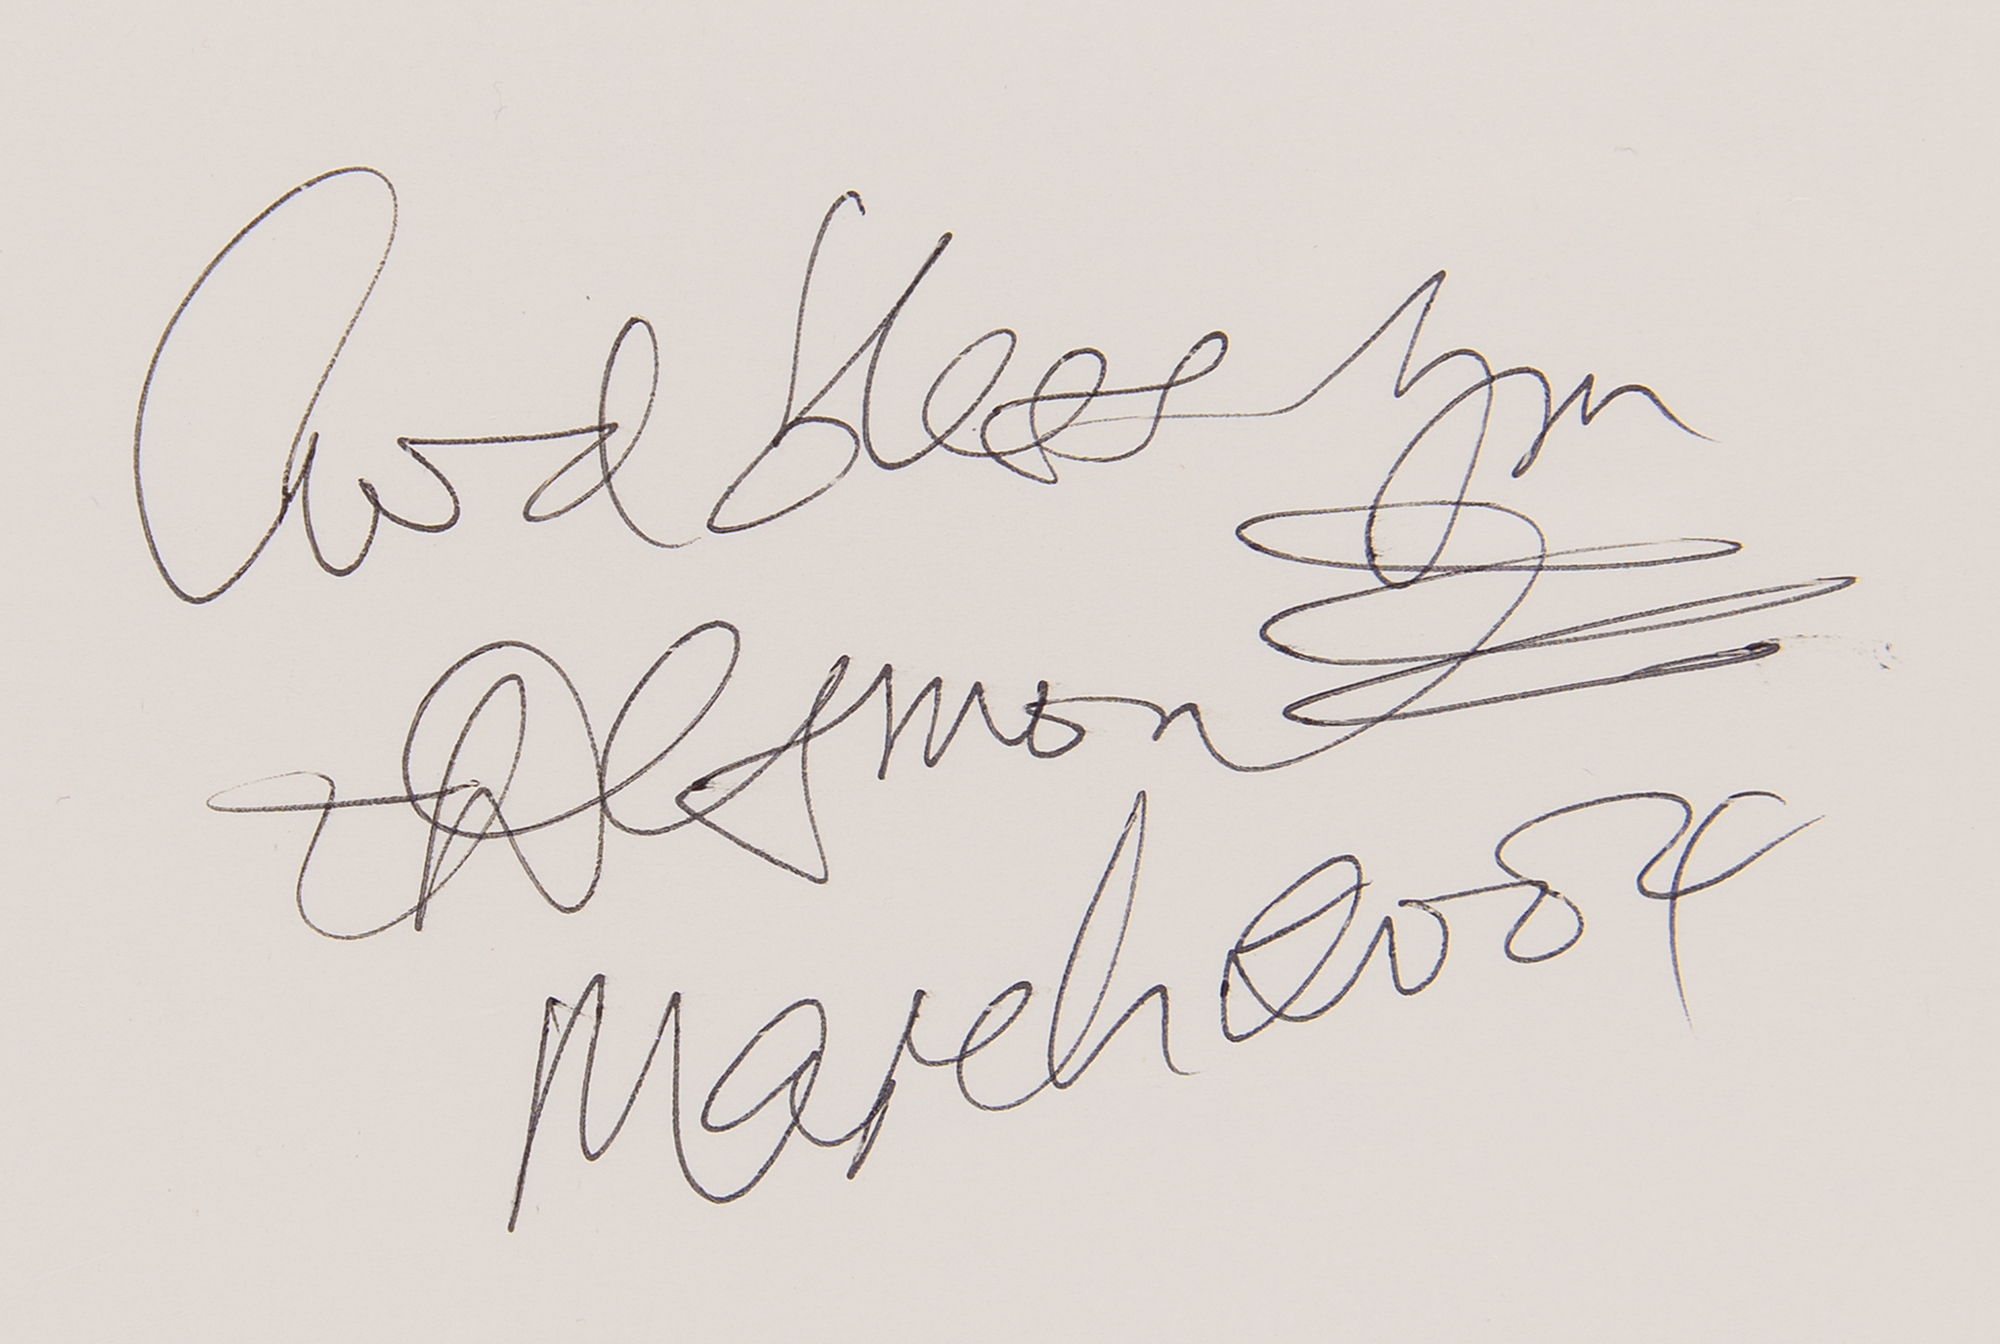 God bless you
March 2004